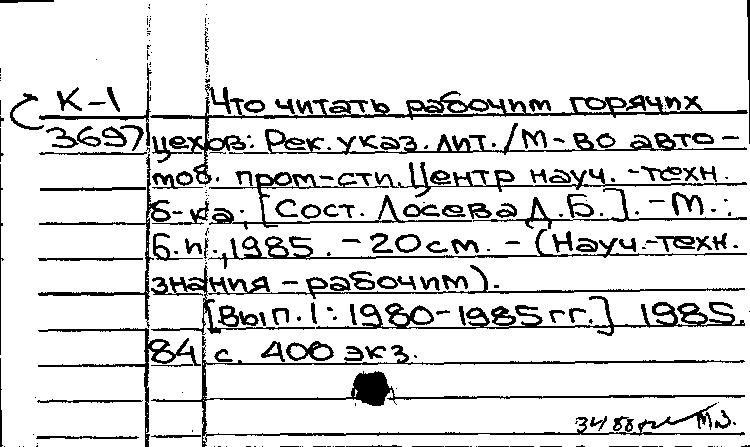 К-1 Что читать рабочим горячих
3697 цехов: Рек. указ. лит. / М-во авто-
моб. пром-сти. Центр науч.-техн.
б-ка; [Сост. Лосева Д.Б.]. - М.:
б.и., 1985. - 20 см. - (Науч.-техн.
знания - рабочим).
[Вып. 1: 1980-1985 гг.] 1985.
84 с. 400 экз.